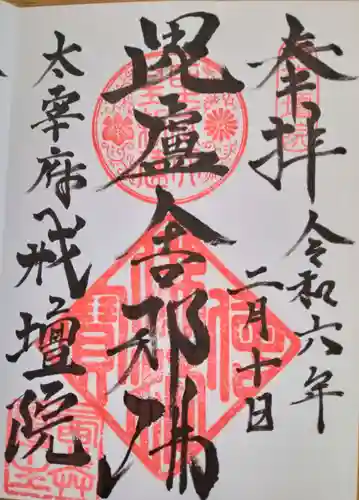 奉拝
令和六年
二月十日
毘盧舎那佛
太宰府戒壇院